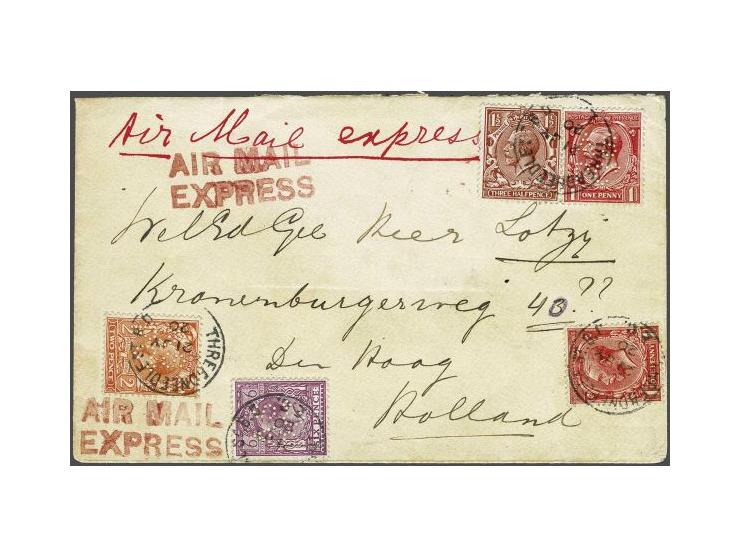 Air Mail express
AIR MAIL
EXPRESS
1½ 1½
THREE HALFPENCE
ONE PENNY
WelEdGel Heer Lotzy
Kronenburgerweg 43 ??
Den Haag
Holland
THREADNEEDLE ST. B.O.
21 JY
20
SIX PENCE
AIR MAIL
EXPRESS